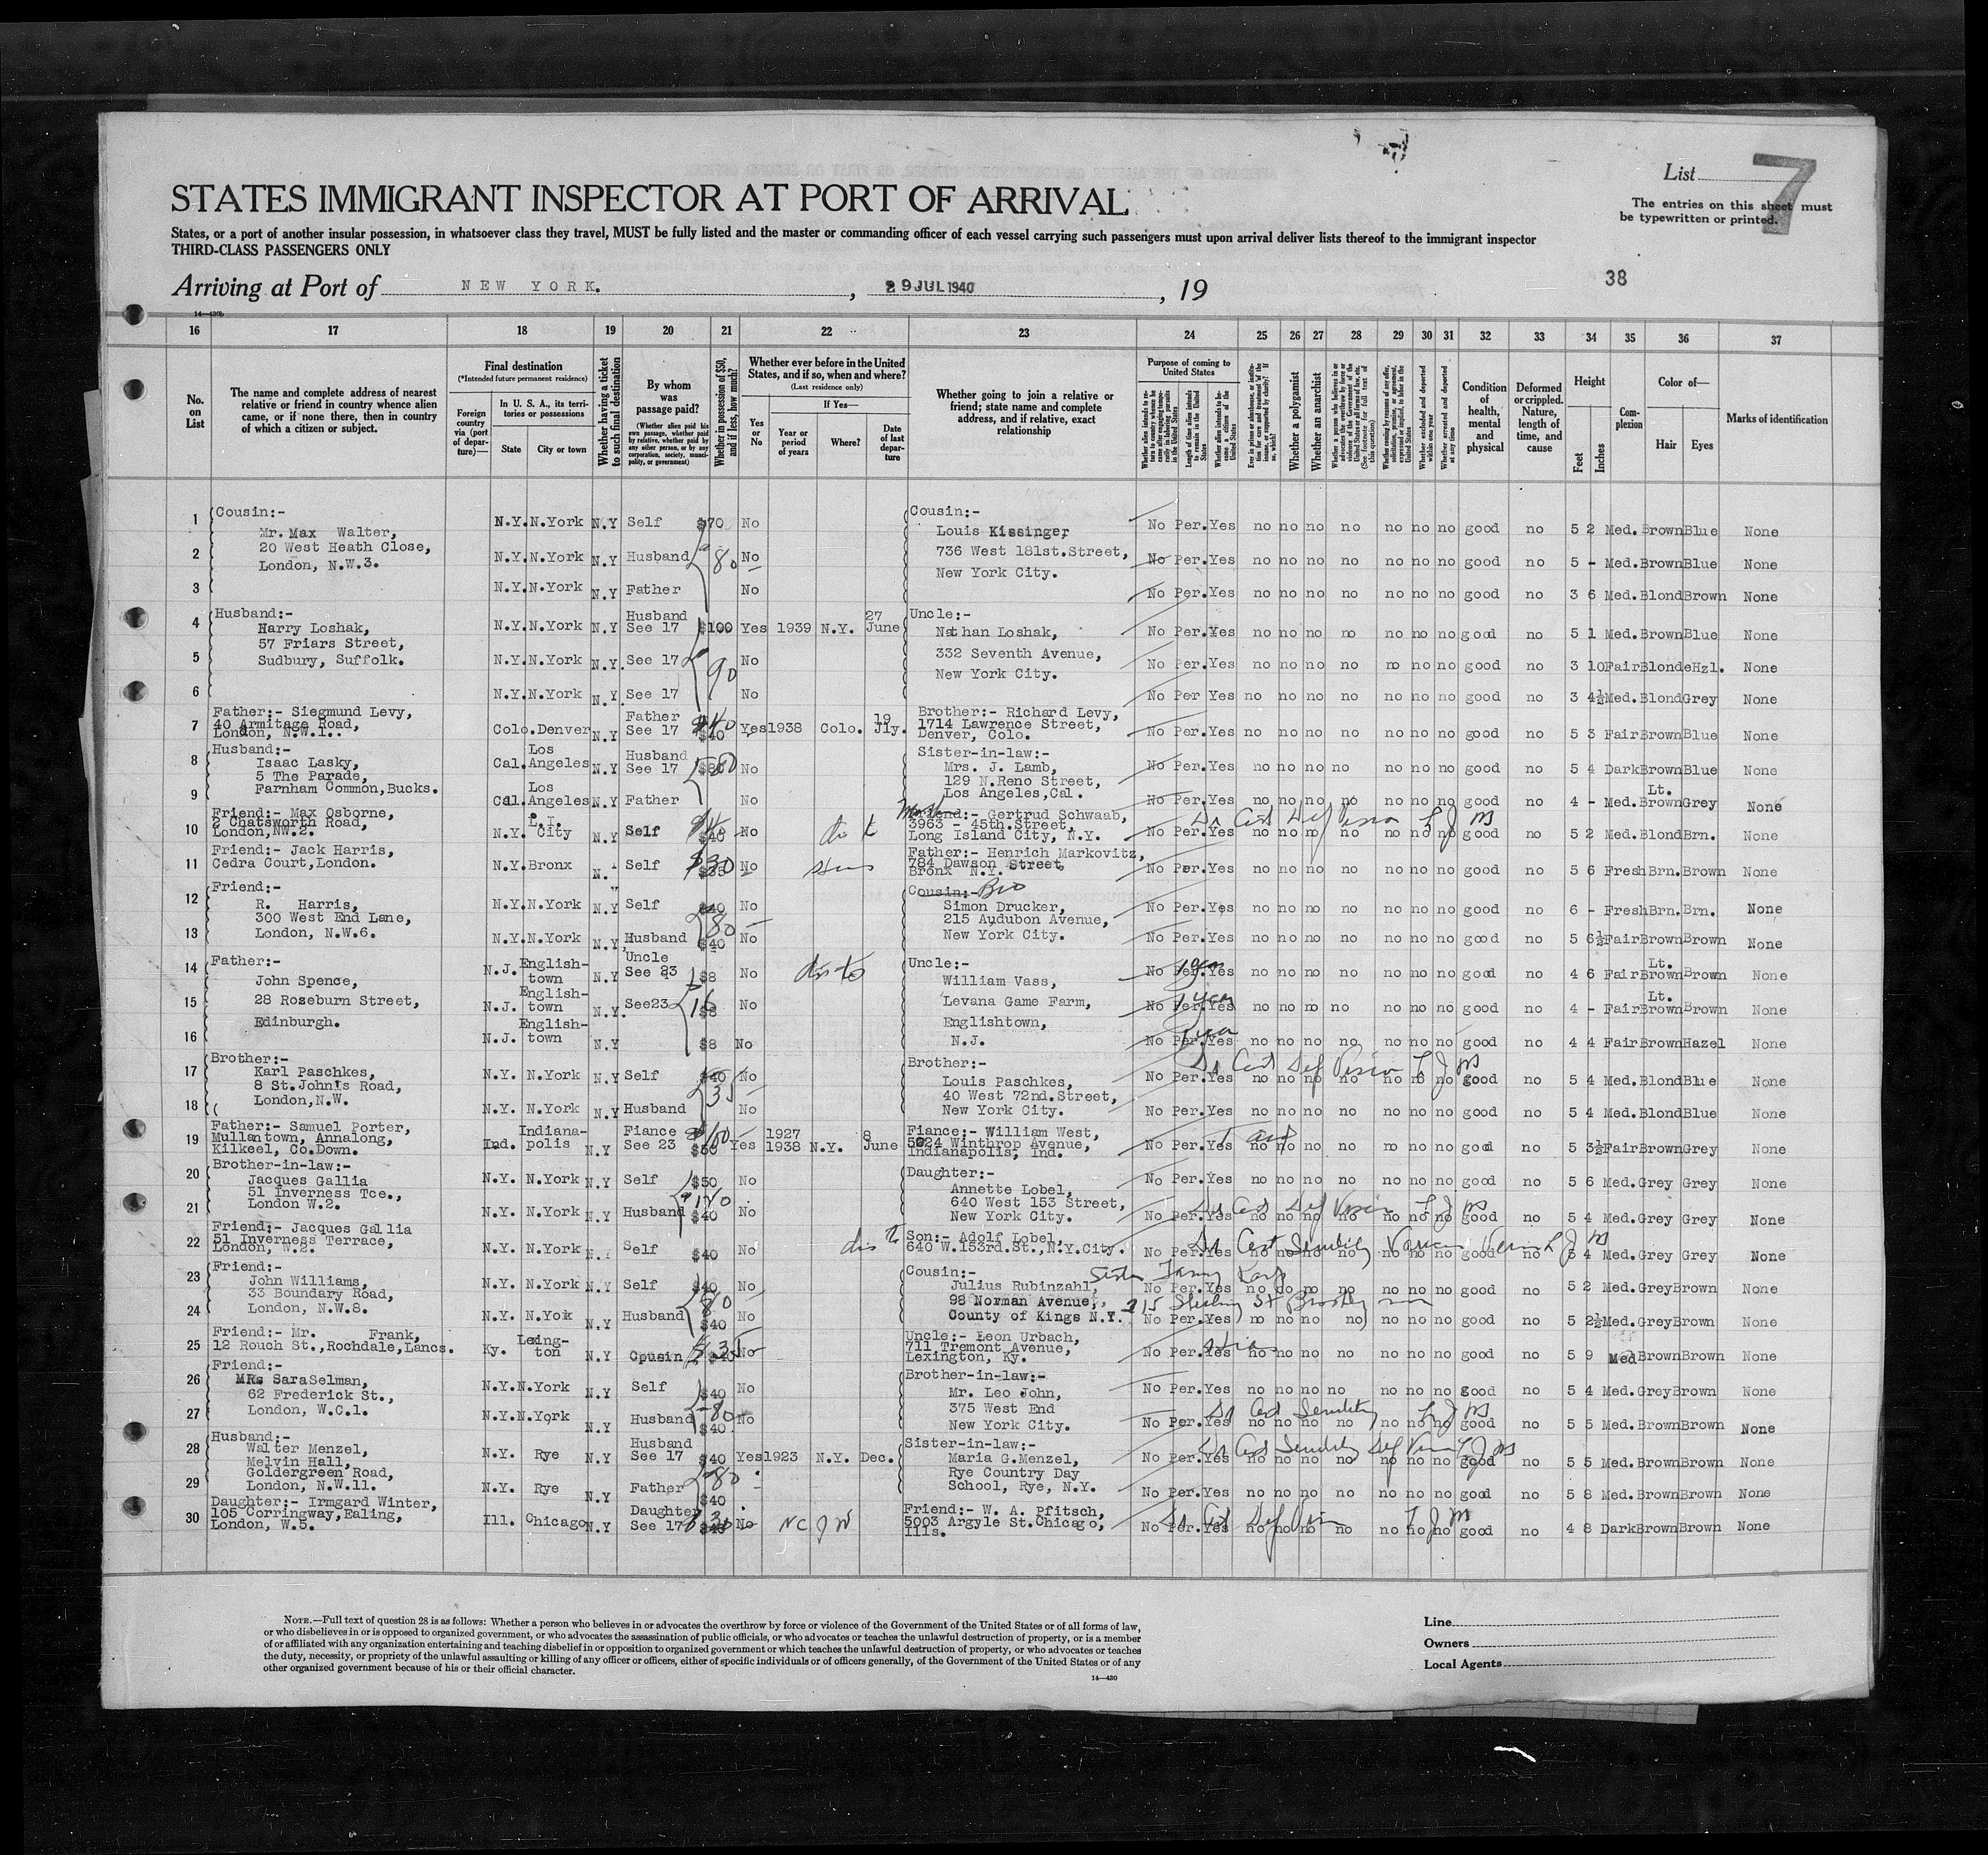 List 7
STATES IMMIGRANT INSPECTOR AT PORT OF ARRIVAL
The entries on this sheet must
be typewritten or printed.
States, or a port of another insular possession, in whatsoever class they travel, MUST be fully listed and the master or commanding officer of each vessel carrying such passengers must upon arrival deliver lists thereof to the immigrant inspector
THIRD-CLASS PASSENGERS ONLY
Arriving at Port of NEW YORK. , 29 JUL 1940 , 19
38
14—430b
16 17 18 19 20 21 22 23 24 25 26 27 28 29 30 31 32 33 34 35 36 37
No. on List
The name and complete address of nearest relative or friend in country whence alien came, or if none there, then in country of which a citizen or subject.
Final destination
(*Intended future permanent residence)
Foreign country via (port of departure)—
In U. S. A., its territories or possessions
State
City or town
Whether having a ticket to such final destination
By whom was passage paid?
(Whether alien paid his own passage, whether paid by relative, whether paid by any other person, or by any corporation, society, municipality, or government)
Whether in possession of $50, and if less, how much?
Whether ever before in the United States, and if so, when and where?
(Last residence only)
If Yes—
Yes or No
Year or period of years
Where?
Date of last departure
Whether going to join a relative or friend; state name and complete address, and if relative, exact relationship
Purpose of coming to United States
Whether a polygamist
Whether an anarchist
Condition of health, mental and physical
Deformed or crippled. Nature, length of time, and cause
Height
Feet
Inches
Complexion
Color of—
Hair
Eyes
Marks of identification
1 Cousin:- Mr. Max Walter, N.Y. N.York N.Y Self $70 No Cousin:- Louis Kissinger No Per. Yes no no no no no no no good no 5 2 Med. Brown Blue None
2 20 West Heath Close, London, N.W.3. N.Y. N.York N.Y Husband 80 No 736 West 181st.Street, New York City. No Per. Yes no no no no no no no good no 5 - Med. Brown Blue None
3 N.Y. N.York N.Y Father No No Per. Yes no no no no no no no good no 3 6 Med. Blond Brown None
4 Husband:- Harry Loshak, N.Y. N.York N.Y Husband See 17 $100 Yes 1939 N.Y. 27 June Uncle:- Nathan Loshak, No Per. Yes no no no no no no no good no 5 1 Med. Brown Blue None
5 57 Friars Street, Sudbury, Suffolk. N.Y. N.York N.Y. See 17 90 No 332 Seventh Avenue, No Per. Yes no no no no no no no good no 3 10 Fair Blonde Hzl. None
6 N.Y. N.York N.Y. See 17 No New York City. No Per Yes no no no no no no no good no 3 4½ Med. Blond Grey None
7 Father:- Siegmund Levy, 40 Armitage Road, London, N.W.1.. Colo. Denver N.Y Father See 17 $40 Yes 1938 Colo. 19 Jly. Brother:- Richard Levy, 1714 Lawrence Street, Denver, Colo. No Per. Yes no no no no no no no good no 5 3 Fair Brown Blue None
8 Husband:- Isaac Lasky, 5 The Parade, Cal. Los Angeles N.Y Husband See 17 No Sister-in-law:- Mrs. J. Lamb, 129 N.Reno Street, No Per. Yes no no no no no no no good no 5 4 Dark Brown Blue None
9 Farnham Common,Bucks. Cal. Los Angeles N.Y Father No Los Angeles,Cal. No Per. Yes no no no no no no no good no 4 - Med. Lt. Brown Grey None
10 Friend:- Max Osborne, 2 Chatsworth Road, London,NW.2. N.Y. L.I. City N.Y Self $40 No Gertrud Schwaab, 3963 - 45th.Street, Long Island City, N.Y. No Per. Yes no no no no no no no good no 5 2 Med. Blond Brn. None
11 Friend:- Jack Harris, Cedra Court,London. N.Y. Bronx N. Y Self $30 No Father:- Henrich Markovitz, 784 Dawson Street, Bronx N.Y. No Per. Yes no no no no no no no good no 5 6 Fresh Brn. Brown None
12 Friend:- R. Harris, 300 West End Lane, N.Y. N.York N.Y Self $40 80 No Cousin:- Bro Simon Drucker, 215 Audubon Avenue, No Per. Yes no no no no no no no good no 6 - Fresh Brn. Brn. None
13 London, N.W.6. N.Y. N.York N.Y. Husband $40 No New York City. No Per. Yes no no no no no no no good no 5 6½ Fair Brown Brown None
14 Father:- John Spence, N.J. Englishtown N.Y Uncle See 23 $8 No Uncle:- William Vass, No Per. Yes no no no no no no no good no 4 6 Fair Lt. Brown Brown None
15 28 Roseburn Street, N.J. Englishtown N.Y. See23 16 $8 No Levana Game Farm, No Per. Yes 1 year no no no no no no no good no 4 - Fair Lt. Brown Brown None
16 Edinburgh. N.J. Englishtown N.Y $8 No Englishtown, N.J. No Per. Yes no no no no no no no good no 4 4 Fair Brown Hazel None
17 Brother:- Karl Paschkes, 8 St.John's Road, N.Y. N.York N.Y Self $40 35 No Brother:- Louis Paschkes, 40 West 72nd.Street, No Per. Yes no no no no no no no good no 5 4 Med. Blond Blue None
18 London,N.W. N.Y. N.York N.Y Husband No New York City. No Per. Yes no no no no no no no good no 5 4 Med. Blond Blue None
19 Father:- Samuel Porter, Mullantown, Annalong, Kilkeel, Co.Down. Ind. Indianapolis N.Y Fiance See 23 $50 Yes 1927 1938 N.Y. 8 June Fiance:- William West, 5024 Winthrop Avenue, Indianapolis, Ind. No Per. Yes no no no no no no no good no 5 3½ Fair Brown Grey None
20 Brother-in-law:- Jacques Gallia N.Y. N.York N.Y Self $50 No Daughter:- Annette Lobel, No Per. Yes no no no no no no no good no 5 6 Med. Grey Grey None
21 51 Inverness Tce., London W.2. N.Y. N.York N.Y Husband $40 No 640 West 153 Street, New York City. No Per. Yes no no no no no no no good no 5 4 Med. Grey Grey None
22 Friend:- Jacques Gallia 51 Inverness Terrace, London, W.2. N.Y. N.York N.Y Self $40 No Son:- Adolf Lobel, 640 W.153rd.St.,N.Y.City. No Per. Yes no no no no no no no good no 5 4 Med. Grey Grey None
23 Friend:- John Williams, 33 Boundary Road, N.Y. N.York N.Y Self $40 80 No Cousin:- Julius Rubinzahl, No Per. Yes no no no no no no no good no 5 2 Med. Grey Brown None
24 London, N.W.8. N.Y. N.York N.Y Husband $40 No 98 Norman Avenue, County of Kings N.Y. No Per. Yes no no no no no no good no 5 2½ Med. Grey Brown None
25 Friend:- Mr. Frank, 12 Rouch St.,Rochdale,Lancs. Ky. Lexington N.Y Cousin $35 No Uncle:- Leon Urbach, 711 Tremont Avenue, Lexington, Ky. No Per. Yes no no no no no no no good no 5 9 Med Brown Brown None
26 Friend:- MRs SaraSelman, 62 Frederick St., N.Y. N.York N.Y Self $40 No Brother-in-law:- Mr. Leo John, No Per. Yes no no no no no no no good no 5 4 Med. Grey Brown None
27 London, W.C.1. N.Y. N.York N.Y Husband 80 $40. No 375 West End New York City. No Per. Yes no no no no no no no good no 5 5 Med. Brown Brown None
28 Husband:- Walter Menzel, Melvin Hall, N.Y. Rye N.Y Husband See 17 $40 Yes 1923 N.Y. Dec. Sister-in-law:- Maria G.Menzel, No Per. Yes no no no no no no no good no 5 5 Med. Brown Brown None
29 Goldergreen Road, London, N.W.11. N.Y. Rye N.Y Father 80 $40 Rye Country Day School, Rye, N.Y. No Per. Yes no no no no no no no good no 5 8 Med. Brown Brown None
30 Daughter:- Irmgard Winter, 105 Corringway,Ealing, London, W.5. Ill. Chicago N.Y Daughter See 17 No Friend:- W. A. Pfitsch, 5003 Argyle St.Chicago, Ills. No Per. Yes no no no no no no no good no 4 8 Dark Brown Brown None
NOTE.—Full text of question 28 is as follows: Whether a person who believes in or advocates the overthrow by force or violence of the Government of the United States or of all forms of law,
or who disbelieves in or is opposed to organized government, or who advocates the assassination of public officials, or who advocates or teaches the unlawful destruction of property, or is a member
of or affiliated with any organization entertaining and teaching disbelief in or opposition to organized government or which teaches the unlawful destruction of property, or who advocates or teaches
the duty, necessity, or propriety of the unlawful assaulting or killing of any officer or officers, either of specific individuals or of officers generally, of the Government of the United States or of any
other organized government because of his or their official character.
14—430
Line
Owners
Local Agents